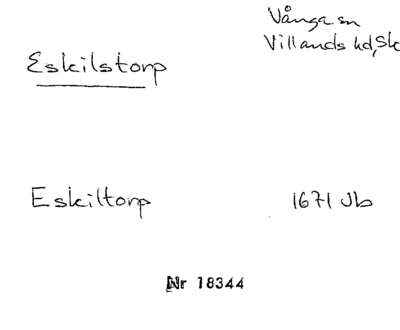 Vånga sn
Villands hd, Sk
Eskilstorp
Eskiltorp 1671 Jb
Nr 18344